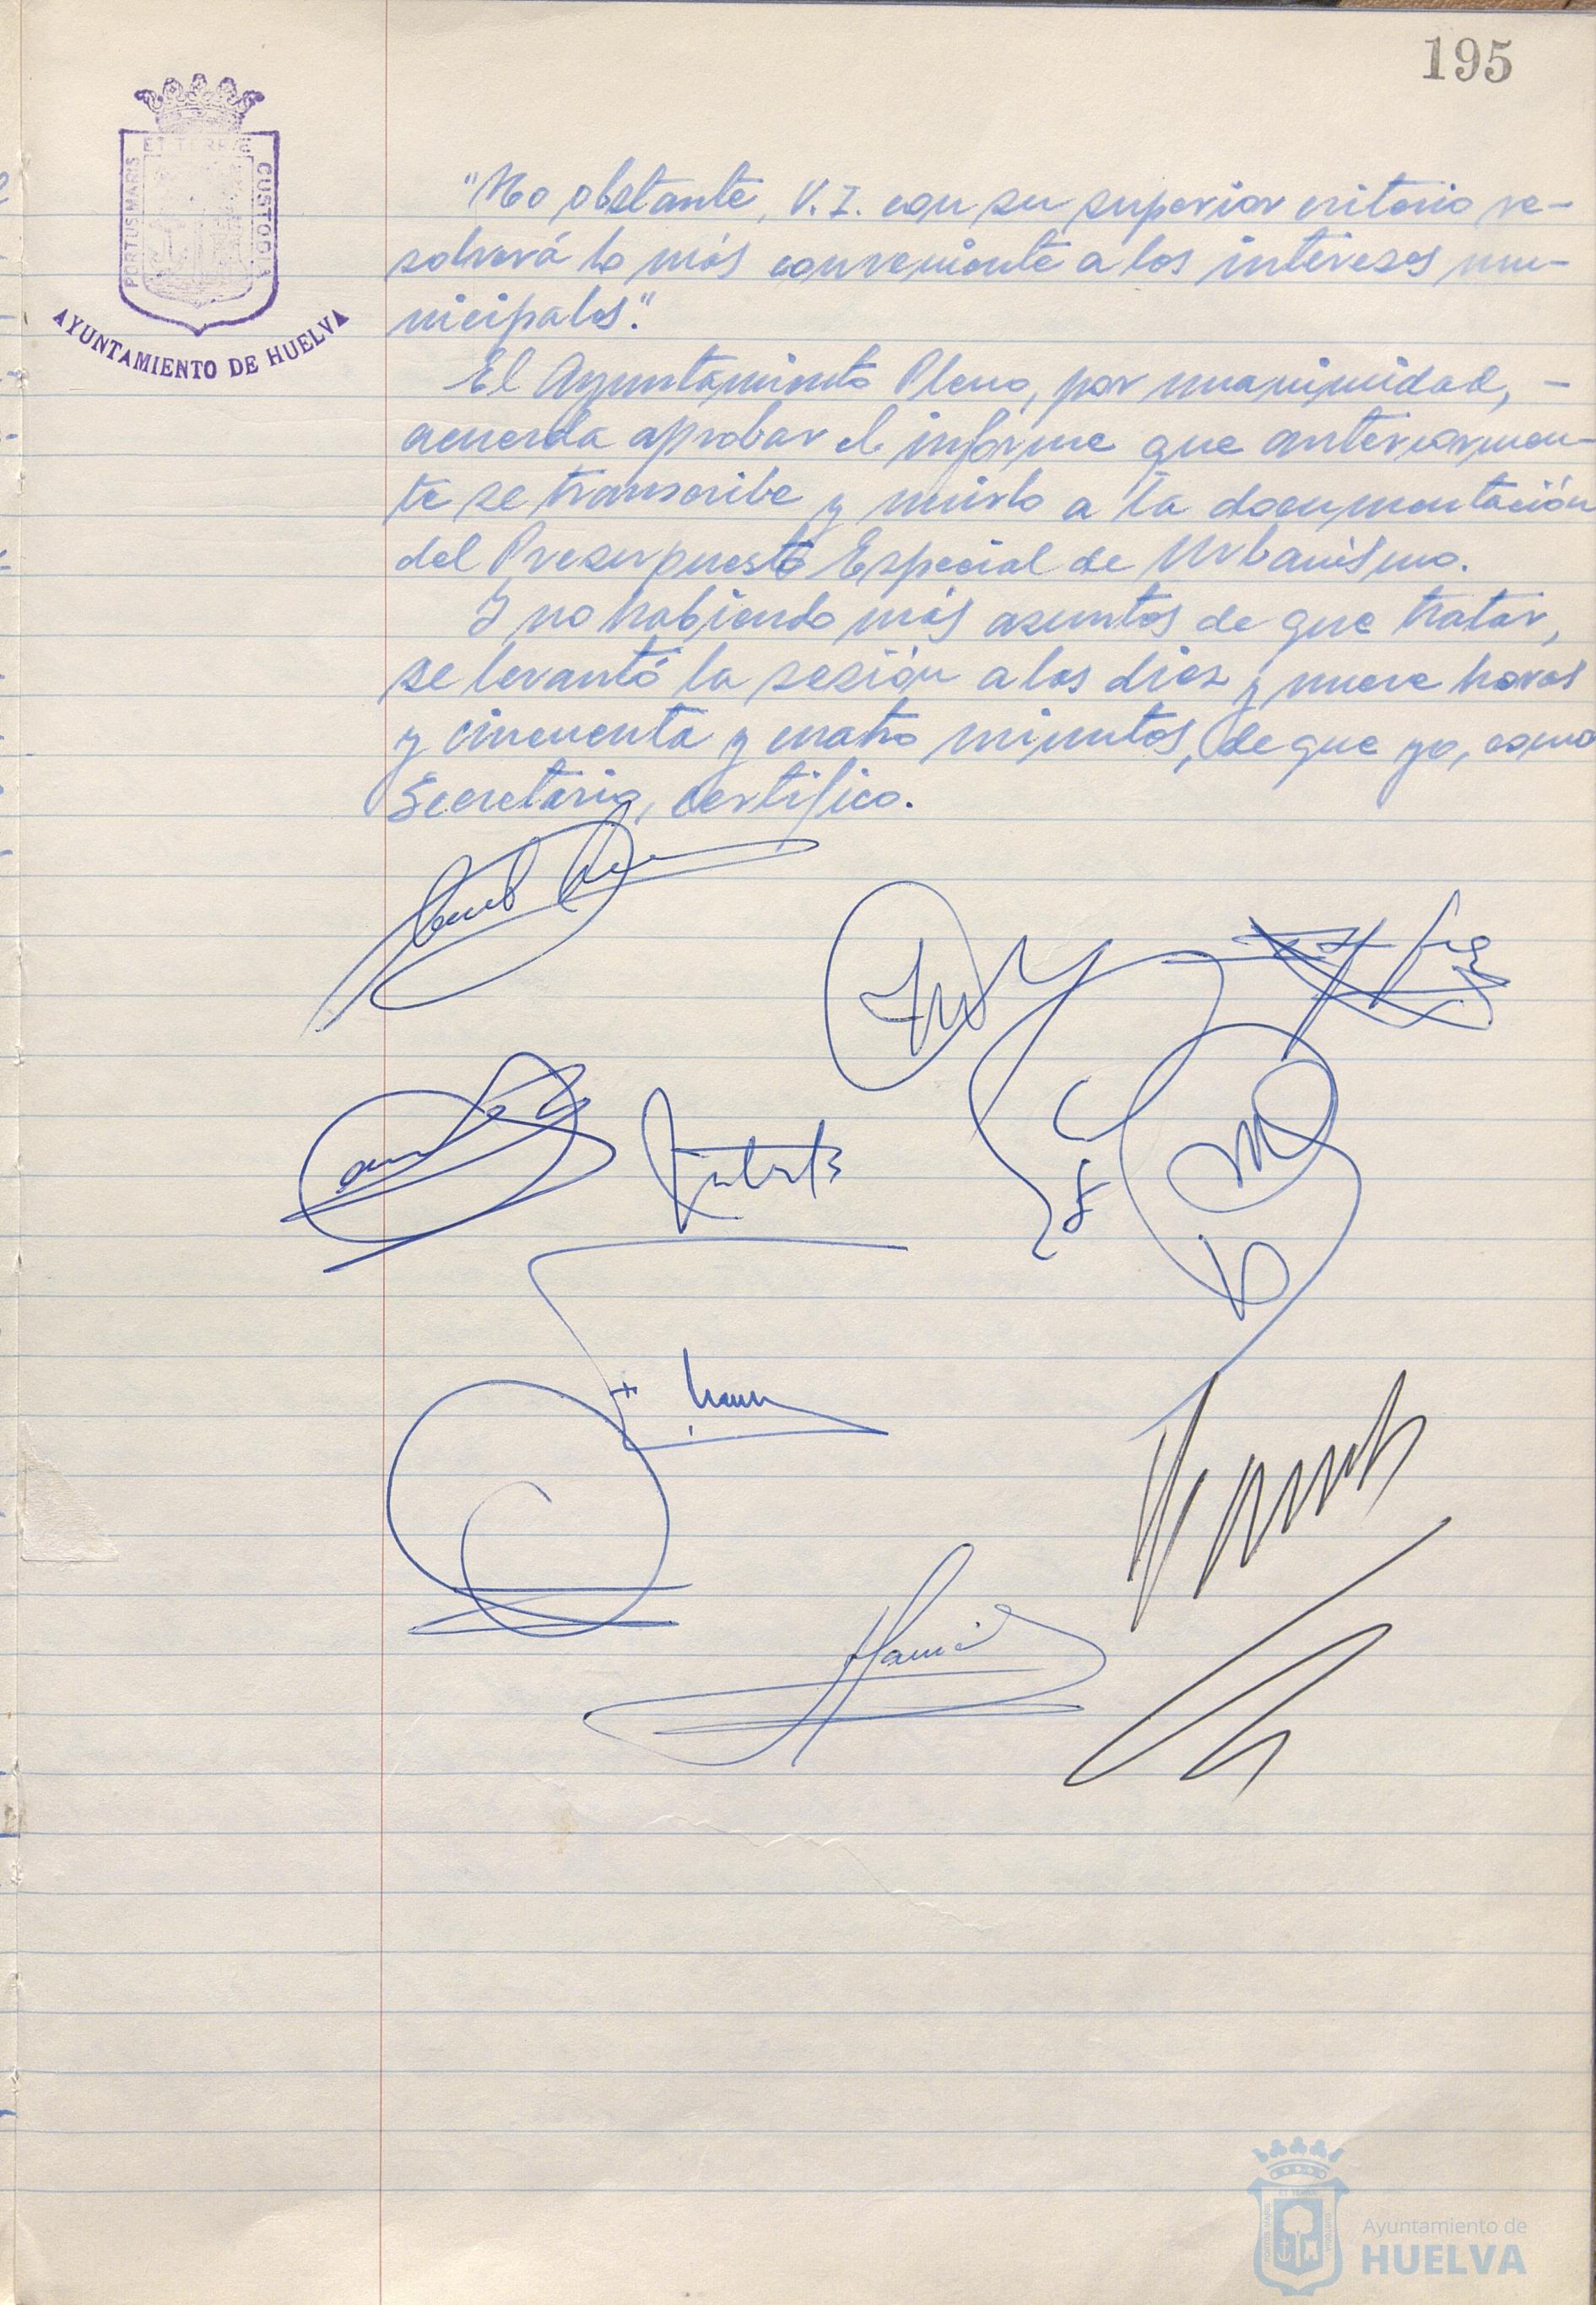 195
ET TERRÆ
PORTUS MARIS
CUSTODIA
AYUNTAMIENTO DE HUELVA
"No obstante, V.I. con su superior criterio re-
solverá lo más conveniente a los intereses mu-
nicipales".
El Ayuntamiento Pleno, por unanimidad, -
acuerda aprobar el informe que anteriormen-
te se transcribe y unirlo a la documentación
del Presupuesto Especial de Urbanismo.
Y no habiendo más asuntos de que tratar,
se levantó la sesión a las diez y nueve horas
y cincuenta y cuatro minutos, de que yo, como
Secretario, certifico.
Ayuntamiento de
HUELVA